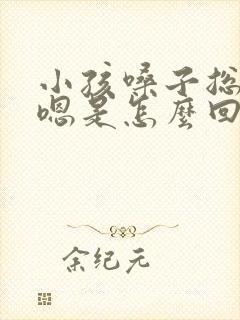 小孩嗓子总
嗯是怎麼回
余纪元